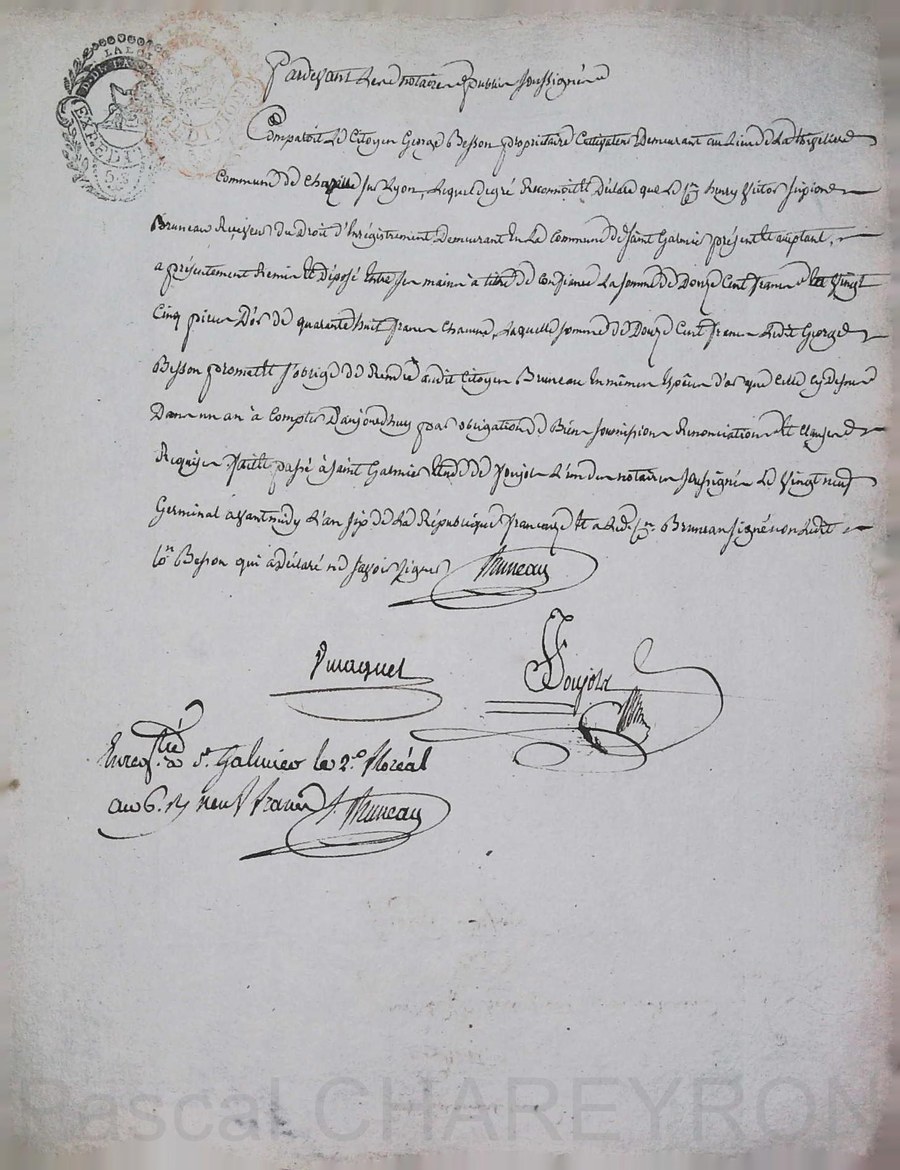 LA LOI
EXPEDI
Pardevant Les notaires publics soussignés
Comparoit Le Citoyen George Besson propriétaire Cultivateur Demeurant au Lieu de La
Commune de Chapelle sur Lyon, Lequel degré Reconnoit et Déclare que Le Cen henry Victor Scipion
Bruneau Receveur du Droit d'Enrégistrement Demeurant En La Commune de Saint Galmier présent et acceptant,
a présentement Remis et Déposé Entre ses mains à titre de Confiance La somme de Douze Cent francs et Vingt
Cinq pieces D'or de quarente huit francs Chacune, Laquelle somme de Douze Cent francs Ledit George
Besson promet et s'oblige de Rendre audit Citoyen Bruneau En mêmes Espêces d'or que Celles Cy dessus
Dans un an à Compter D'aujourdhuy par obligation de Biens soumissions Renonciations et Clauses
Requises fait et passé à Saint Galmier Etude de Poujol L'un des notaires soussignés Le Vingt neuf
Germinal avant midy L'an six de La République françoise et a Ledt Cen Bruneau signé non Ledit
Cen Besson qui a Déclaré ne savoir signer Bruneau
Poujol
Enregtré a St. Galmier le 2. floréal
an 6. R neuf francs Bruneau
Pascal CHAREYRON